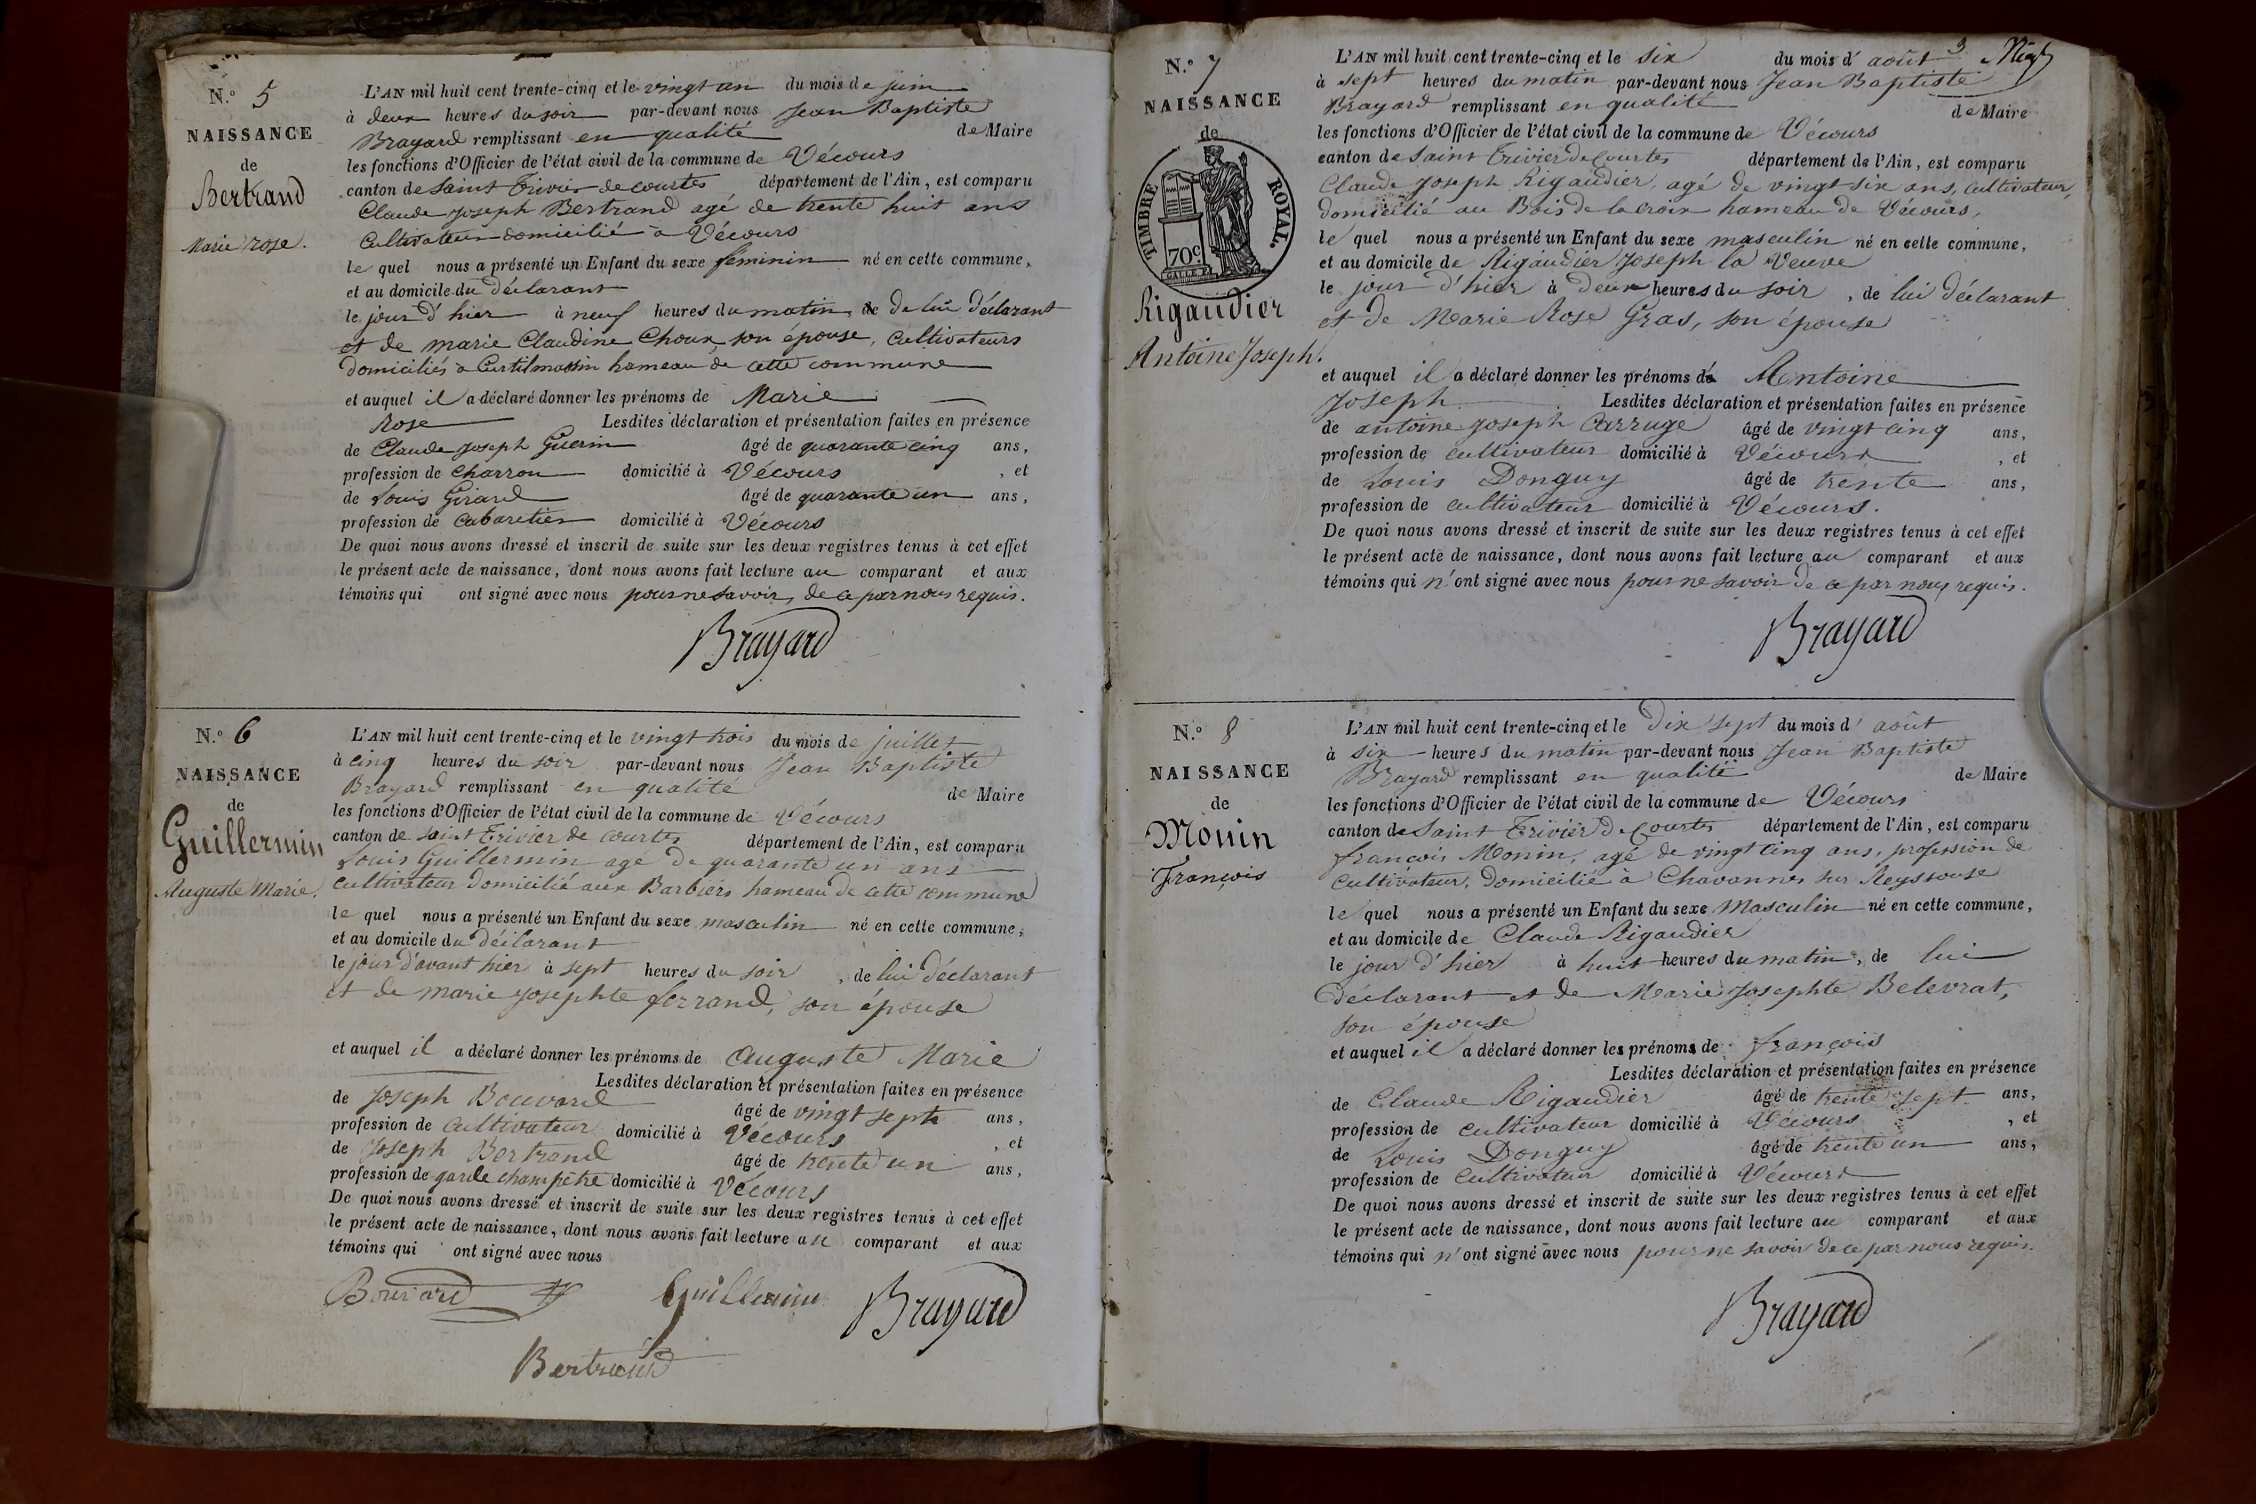 N.° 5
NAISSANCE
de
Bertrand
Marie rose.
L'AN mil huit cent trente-cinq et le vingt un du mois de juin
à deux heures du soir par-devant nous Jean Baptiste
Brayard remplissant en qualité de Maire
les fonctions d'Officier de l'état civil de la commune de Vécours
canton de Saint Trivier de courtes département de l'Ain, est comparu
Claude joseph Bertrand agé de trente huit ans
Cultivateur domicilié à Vécours
le quel nous a présenté un Enfant du sexe féminin né en cette commune,
et au domicile du déclarant
le jour d'hier à neuf heures du matin de de lui déclarant
et de marie Claudine Choux, son épouse, Cultivateurs
domiciliés à Curtilmassin hameau de cette commune
et auquel il a déclaré donner les prénoms de Marie
Rose Lesdites déclaration et présentation faites en présence
de Claude joseph Guerin âgé de quarante cinq ans,
profession de Charron domicilié à Vécours , et
de Louis Girard âgé de quarante un ans,
profession de Cabaretier domicilié à Vécours
De quoi nous avons dressé et inscrit de suite sur les deux registres tenus à cet effet
le présent acte de naissance, dont nous avons fait lecture au comparant et aux
témoins qui ont signé avec nous pour ne savoir, de ce par nous requis.
Brayard
N.° 6
NAISSANCE
de
Guillermin
Auguste Marie.
L'AN mil huit cent trente-cinq et le vingt trois du mois de juillet
à cinq heures du soir par-devant nous Jean Baptiste
Brayard remplissant en qualité de Maire
les fonctions d'Officier de l'état civil de la commune de Vécours
canton de saint Trivier de courtes département de l'Ain, est comparu
Louis Guillermin agé de quarante un ans
cultivateur domicilié aux Barbiers hameau de cette commune
le quel nous a présenté un Enfant du sexe masculin né en cette commune,
et au domicile du déclarant
le jour d'avant hier à sept heures du soir , de lui déclarant
et de marie josephte ferrand, son épouse
et auquel il a déclaré donner les prénoms de Auguste Marie
Lesdites déclaration et présentation faites en présence
de Joseph Bouvard âgé de vingt sept ans,
profession de Cultivateur domicilié à Vécours , et
de Joseph Bertrand âgé de trente un ans,
profession de garde champêtre domicilié à Vécours
De quoi nous avons dressé et inscrit de suite sur les deux registres tenus à cet effet
le présent acte de naissance, dont nous avons fait lecture au comparant et aux
témoins qui ont signé avec nous
Bouvard Guillermin Brayard
Bertrand
3
N.° 7
NAISSANCE
de
TIMBRE ROYAL.
70c.
Rigaudier
Antoine Joseph.
L'AN mil huit cent trente-cinq et le six du mois d'août
à sept heures du matin par-devant nous Jean Baptiste
Brayard remplissant en qualité de Maire
les fonctions d'Officier de l'état civil de la commune de Vécours
canton de Saint Trivier de Courtes département de l'Ain, est comparu
Claude Joseph Rigaudier, agé de vingt six ans, cultivateur,
domicilié au Bois de la croix hameau de Vécours,
le quel nous a présenté un Enfant du sexe masculin né en cette commune,
et au domicile de Rigaudier Joseph la Veuve
le jour d'hier à deux heures du soir , de lui déclarant
et de Marie Rose Gras, son épouse
et auquel il a déclaré donner les prénoms de Antoine
Joseph Lesdites déclaration et présentation faites en présence
de antoine joseph Carruge âgé de vingt cinq ans,
profession de cultivateur domicilié à Vécours , et
de Louis Donguy âgé de trente ans,
profession de cultivateur domicilié à Vécours.
De quoi nous avons dressé et inscrit de suite sur les deux registres tenus à cet effet
le présent acte de naissance, dont nous avons fait lecture au comparant et aux
témoins qui n'ont signé avec nous pour ne savoir de ce par nous requis.
Brayard
N.° 8
NAISSANCE
de
Monin
François
L'AN mil huit cent trente-cinq et le Dix sept du mois d'août
à six heures du matin par-devant nous Jean Baptiste
Brayard remplissant en qualité de Maire
les fonctions d'Officier de l'état civil de la commune de Vécours
canton de Saint Trivier de Courtes département de l'Ain, est comparu
françois Monin, agé de vingt cinq ans, profession de
cultivateur, domicilié à Chavannes sur Reyssouse
le quel nous a présenté un Enfant du sexe Masculin né en cette commune,
et au domicile de Claude Rigaudier
le jour d'hier à huit heures du matin, de lui
déclarant et de Marie Josephte Belevrat,
son épouse
et auquel il a déclaré donner les prénoms de françois
Lesdites déclaration et présentation faites en présence
de Claude Rigaudier âgé de trente sept ans,
profession de cultivateur domicilié à Vécours , et
de Louis Donguy âgé de trente un ans,
profession de Cultivateur domicilié à Vécours
De quoi nous avons dressé et inscrit de suite sur les deux registres tenus à cet effet
le présent acte de naissance, dont nous avons fait lecture au comparant et aux
témoins qui n'ont signé avec nous pour ne savoir de ce par nous requis.
Brayard